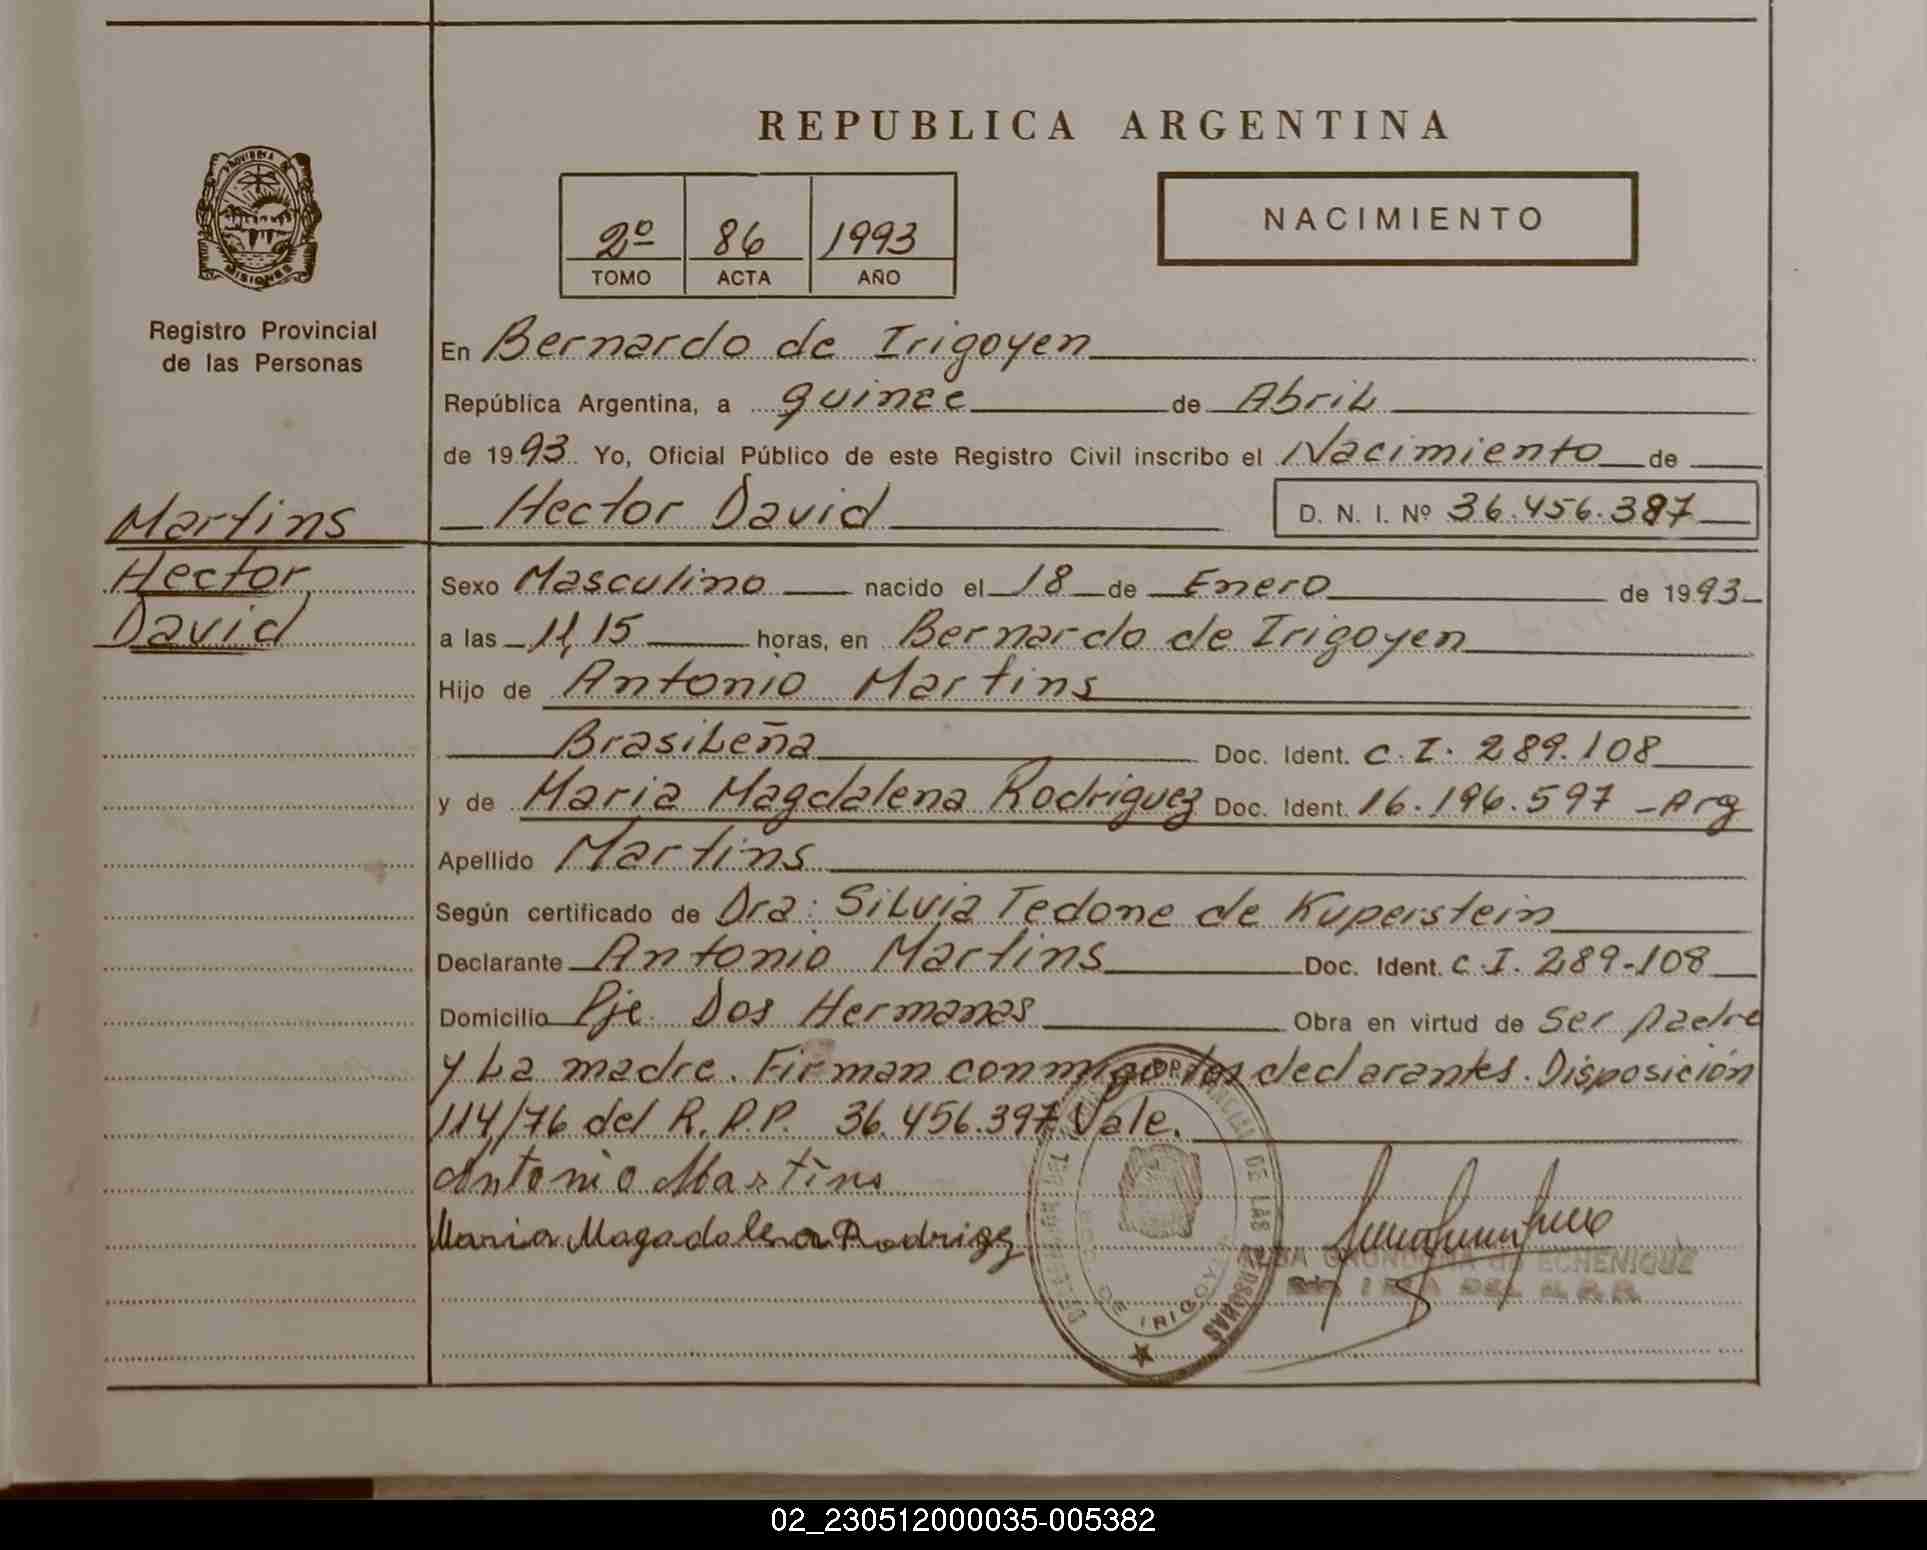 REPUBLICA ARGENTINA
PROVINCIA DE MISIONES
2º 86 1993
TOMO ACTA AÑO
NACIMIENTO
Registro Provincial
de las Personas
Martins
Hector
David
En Bernardo de Irigoyen
República Argentina, a quince de Abril
de 1993. Yo, Oficial Público de este Registro Civil inscribo el Nacimiento de
Hector David D. N. I. Nº 36.456.387
Sexo Masculino nacido el 18 de Enero de 1993
a las 11,15 horas, en Bernardo de Irigoyen
Hijo de Antonio Martins
Brasileña Doc. Ident. C.I. 289.108
y de Maria Magdalena Rodriguez Doc. Ident. 16.196.597 - Arg
Apellido Martins
Según certificado de Dra: Silvia Tedone de Kuperstein
Declarante Antonio Martins Doc. Ident. C.I. 289-108
Domicilio Pje. Dos Hermanas Obra en virtud de Ser padre
y La madre. Firman conmigo los declarantes. Disposición
114/76 del R.P.P. 36.456.397 Vale.
Antonio Martins
Maria Magadalena Rodrigz
DE LAS PERSONAS
DE IRIGOYEN
de ECHENIQUE
DEL R.P.P.
02_230512000035-005382